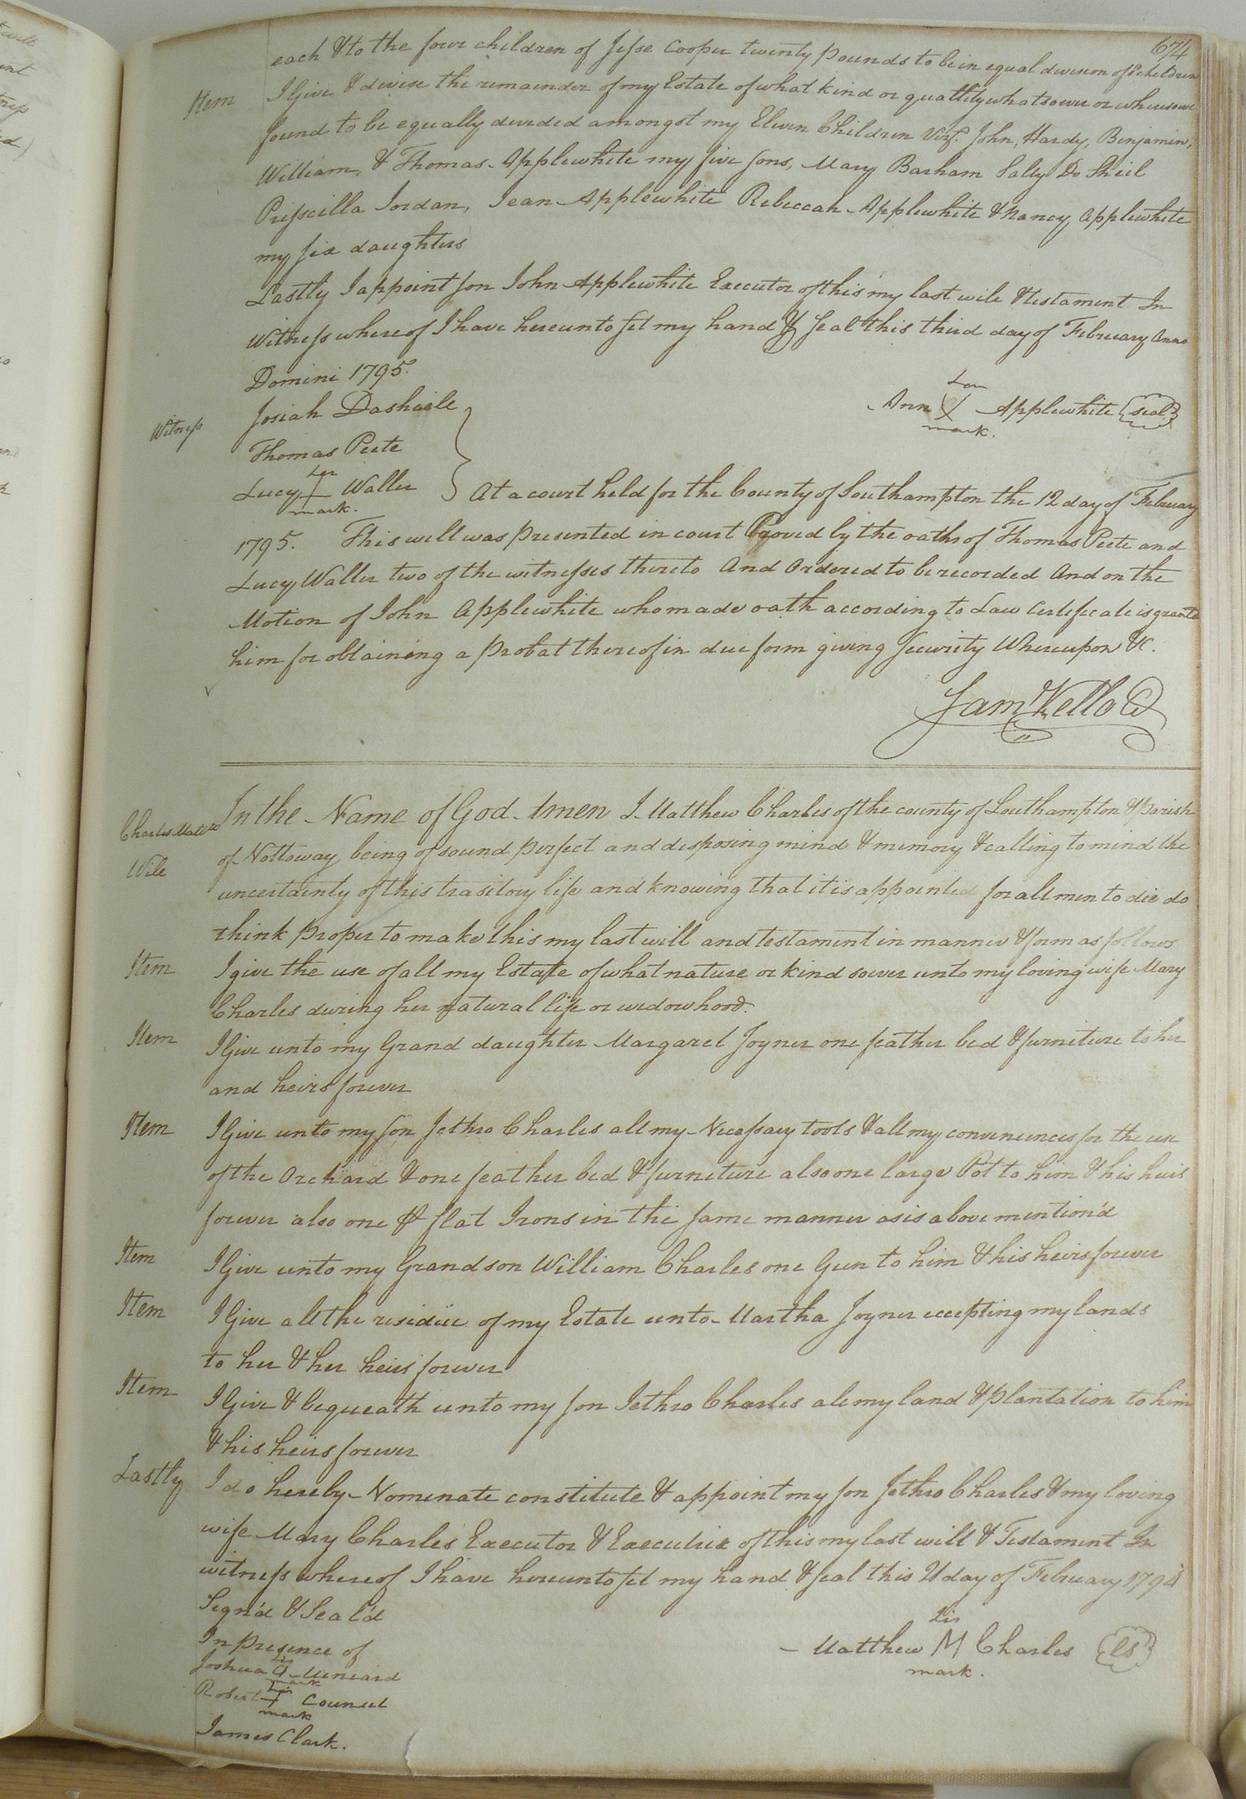 674
each & to the four children of Jesse Cooper twenty pounds to be in equal division of sd children
Item I Give & devise the remainder of my Estate of what kind or quallity whatsoever or wheresoever
found to be equally devided amongst my Eleven Children Vizt. John, Hardy, Benjamin,
William, & Thomas Applewhite my five sons, Mary Barham Sally Da Shiel
Prisscilla Jordan, Jean Applewhite Rebeccah Applewhite & Nancy Applewhite
my six daughters
Lastly I appoint son John Applewhite Executor of this my last wile & testament In
Witness whereof I have hereunto set my hand & seal this third day of February Anno
Domini 1795.
Witness Josiah Dashiele
Thomas Pete
her
Lucy I Waller
mark.
her
Ann X Applewhite (seal)
mark.
At a court held for the County of Southampton the 12 day of February
1795. This will was presented in court Proved by the oaths of Thomas Pete and
Lucy Waller two of the witnesses thereto And Ordered to be recorded And on the
Motion of John Applewhite who made oath according to Law Certificate is grante
him for obtaining a Probat thereof in due form giving Security Whereupon &c.
Saml Kello
Charles Matthew
Wile
In the Name of God Amen I Matthew Charles of the county of Southampton & Parish
of Nottoway being of sound perfect and disposing mind & memory & calling to mind the
uncertainty of this trasitory life and knowing that it is appointed for all men to die do
think proper to make this my last will and testament in manner & form as follows
Item I give the use of all my Estate of what nature or kind soever unto my loving wife Mary
Charles during her natural life or widowhood.
Item I Give unto my Grand daughter Margaret Joyner one feather bed & furniture to her
and heirs forever
Item I Give unto my son Jethro Charles all my Necessary tools & all my conveniences for the use
of the Orchard & one feather bed & furniture also one large Pot to him & his heirs
forever also one & flat Irons in the same manner as is above mention'd
Item I Give unto my Grandson William Charles one Gun to him & his heirs forever
Item I Give all the residue of my Estate unto Martha Joyner excepting my lands
to her & her heirs forever
Item I Give & bequeath unto my son Jethro Charles ale my land & Plantation to him
& his heirs forever
Lastly I do hereby Nominate constitute & appoint my son Jethro Charles & my loving
wife Mary Charles Executor & Executrix of this my last will & Testament In
witness whereof I have hereunto set my hand & seal this day of February 1794
Sign'd & Seal'd
In presence of
his
Joshua Meniard
mark
his
Robert Council
mark
James Clark.
his
Matthew M Charles (LS)
mark.